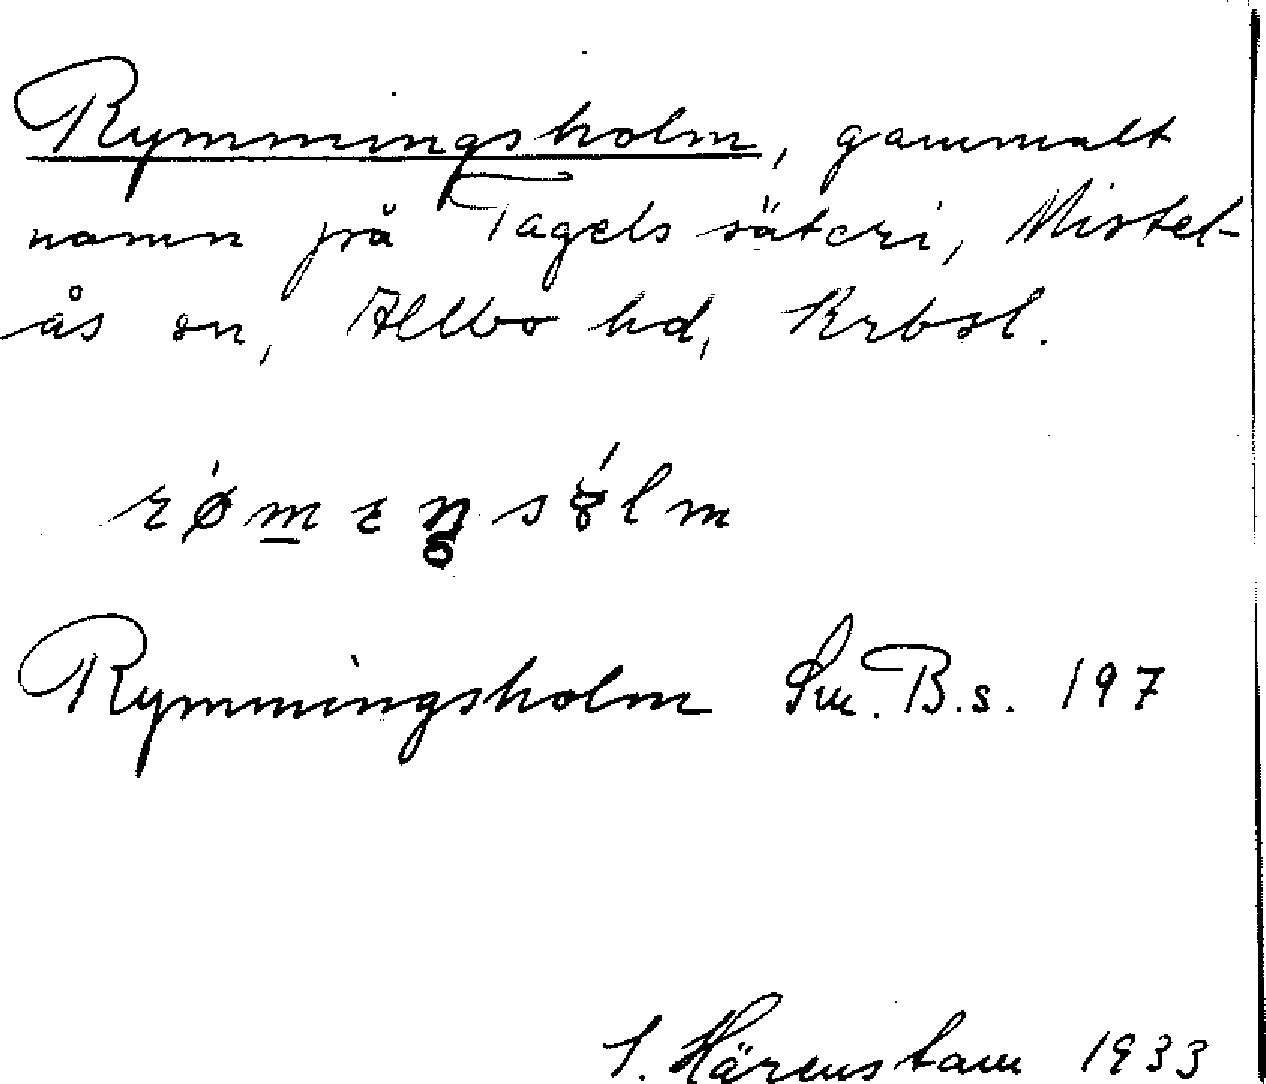 Rymmingsholm, gammalt
namn på Tagels säteri, Mistel-
ås sn, Allbo hd, Krbsl.
Rymmingsholm Sm. B.s. 197
S. Härenstam 1933